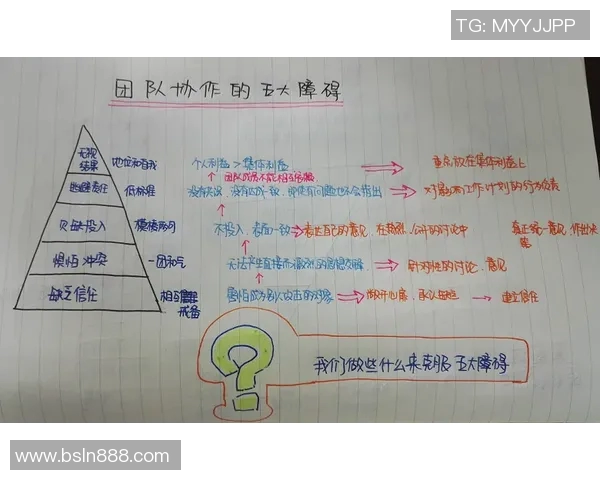 TG: MYYJJPP
团队协作的五大障碍
无视结果 地位和自我 个人利益 > 集体利益 重点放在集体利益上
团队成员不能相互
逃避责任 低标准 没有 没有达成一致, 即使有问题也不会指出 对影响工作计划的行为负责
欠缺投入 模棱两可 不投入, 表面一致 表达自己的意见, 在激烈, 公开的讨论中 真正统一意见, 作出决策
惧怕冲突 一团和气 无法产生直接而激烈的思想交锋 针对性的讨论, 意见
缺乏信任 相互戒备 害怕成为别人攻击的对象 敞开心扉, 承认缺点 建立信任
我们做些什么来克服五大障碍
www.bsln888.com